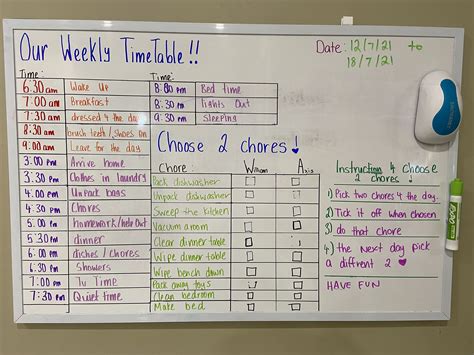 Our Weekly TimeTable!!
Date: 12/7/21 to
18/7/21
Time:
6:30am Wake Up
7:00am Breakfast
7:30am dressed 4 the day
8:30am brush teeth/shoes on
9:00am Leave for the day
3:00pm Arrive home
3:30pm Clothes in laundry
4:00pm Unpack bags
4:30pm Chores
5:00pm homework/help Out
5:30pm dinner
6:00pm dishes/chores
6:30pm Showers
7:00pm Tv Time
7:30pm Quiet time
Time:
8:00pm Bed time
8:30pm lights Out
9:30pm Sleeping
Choose 2 chores!
Chore: William
Pack dishwasher
Unpack dishwasher
Sweep the kitchen
Vacuum room
Clear dinner table
Wipe dinner table
Wipe bench down
Pack away toys
Clean bedroom
Make bed
Instruction 4 Choose
2 chores!
1) Pick two chores 4 the day.
2) Tick it off when chosen
3) do that chore
4) the Next day pick
a diffrent 2
HAVE FUN